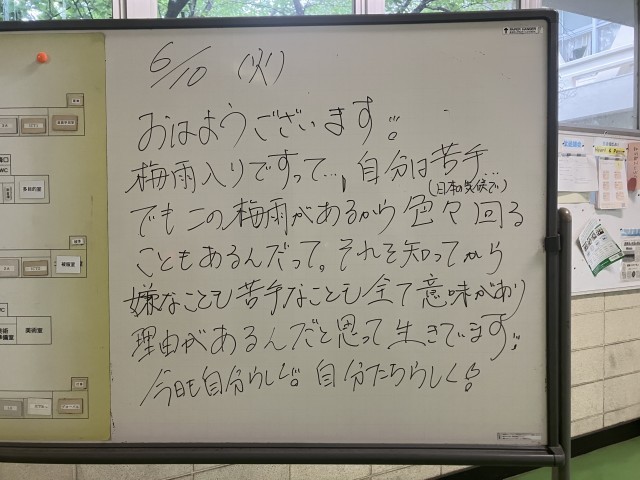 6/10 (火)
おはようございます!!
梅雨入りですって…、自分は苦手
(日本の気候で)
でもこの梅雨があるから色々回る
こともあるんだって。それを知ってから
嫌なことも苦手なことも全て意味があり
理由があるんだと思って生きてます!!
今日も自分らしく。自分たちらしく!
美術室